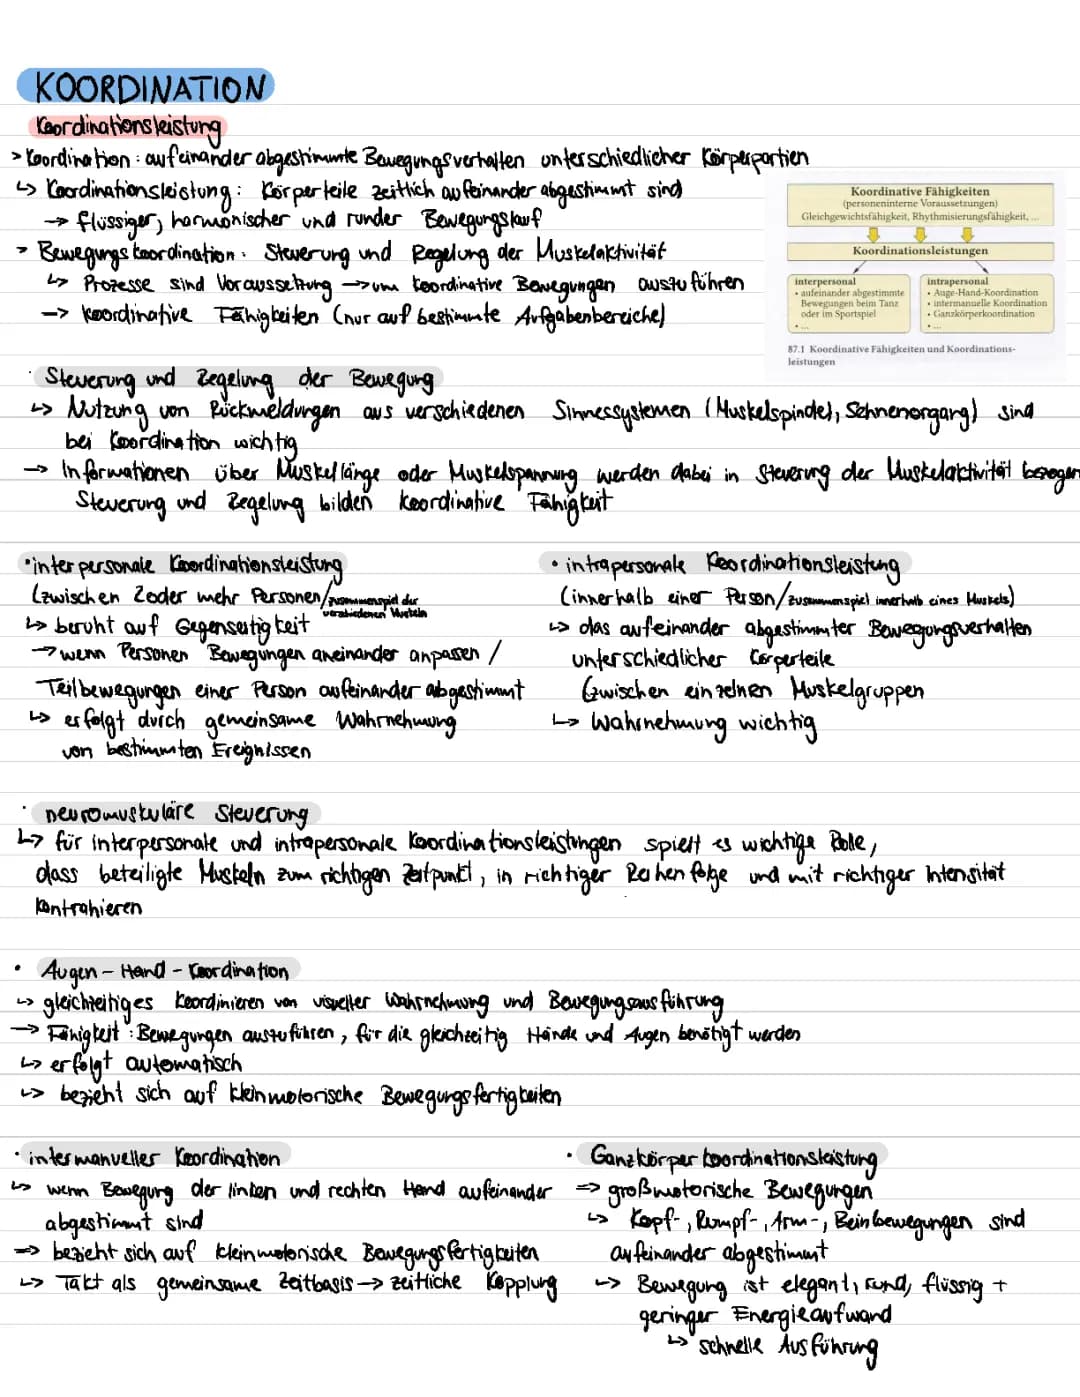 KOORDINATION
Koordinationsleistung
> Koordination: aufeinander abgestimmte Bewegungsverhalten unterschiedlicher Körperpartien
↳ Koordinationsleistung: Körperteile zeitlich aufeinander abgestimmt sind
→ flüssiger, harmonischer und runder Bewegungslauf
> Bewegungskoordination: Steuerung und Regelung der Muskelaktivität
↳ Prozesse sind Voraussetzung → um koordinative Bewegungen auszuführen
→ koordinative Fähigkeiten (nur auf bestimmte Aufgabenbereiche)
Koordinative Fähigkeiten
(personeninterne Voraussetzungen)
Gleichgewichtsfähigkeit, Rhythmisierungsfähigkeit, ...
Koordinationsleistungen
interpersonal
• aufeinander abgestimmte
Bewegungen beim Tanz
oder im Sportspiel
• ...
intrapersonal
• Auge-Hand-Koordination
• intermanuelle Koordination
• Ganzkörperkoordination
• ...
87.1 Koordinative Fähigkeiten und Koordinations-
leistungen
· Steuerung und Regelung der Bewegung
↳ Nutzung von Rückmeldungen aus verschiedenen Sinnessystemen (Muskelspindel, Sehnenorgang) sind
bei Koordination wichtig
→ Informationen über Muskellänge oder Muskelspannung werden dabei in Steuerung der Muskelaktivität bezogen
Steuerung und Regelung bilden koordinative Fähigkeit
• interpersonale Koordinationsleistung
(zwischen 2 oder mehr Personen/zusammenspiel der
verschiedenen Muskeln
↳ beruht auf Gegenseitigkeit
→ wenn Personen Bewegungen aneinander anpassen /
Teilbewegungen einer Person aufeinander abgestimmt
↳ erfolgt durch gemeinsame Wahrnehmung
von bestimmten Ereignissen
• intrapersonale Koordinationsleistung
(innerhalb einer Person/zusammenspiel innerhalb eines Muskels)
↳ das aufeinander abgestimmter Bewegungsverhalten
unterschiedlicher Körperteile
(zwischen einzelnen Muskelgruppen
↳ Wahrnehmung wichtig
· neuromuskuläre Steuerung
↳ für interpersonale und intrapersonale Koordinationsleistungen spielt es wichtige Rolle,
dass beteiligte Muskeln zum richtigen Zeitpunkt, in richtiger Reihenfolge und mit richtiger Intensität
kontrahieren
• Augen-Hand-Koordination
↳ gleichzeitiges Koordinieren von visueller Wahrnehmung und Bewegungsausführung
→ Fähigkeit: Bewegungen auszuführen, für die gleichzeitig Hände und Augen benötigt werden
↳ erfolgt automatisch
↳ bezieht sich auf kleinmotorische Bewegungsfertigkeiten
• intermanueller Koordination
↳ wenn Bewegung der linken und rechten Hand aufeinander
abgestimmt sind
⇒ bezieht sich auf kleinmotorische Bewegungsfertigkeiten
↳ Takt als gemeinsame Zeitbasis → zeitliche Kopplung
• Ganzkörperkoordinationsleistung
⇒ großmotorische Bewegungen
↳ Kopf-, Rumpf-, Arm-, Beinbewegungen sind
aufeinander abgestimmt
↳ Bewegung ist elegant, rund, flüssig +
geringer Energieaufwand
↳ schnelle Ausführung